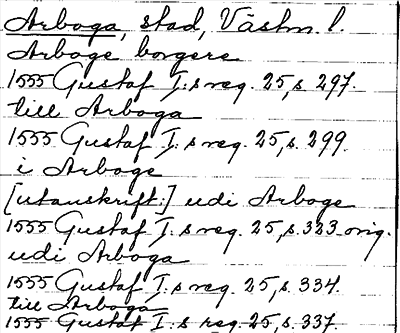 Arboga, stad, Västm. l.
Arboge borgere
1555 Gustaf I:s reg. 25, s. 297.
till Arboga
1555 Gustaf I:s reg. 25, s. 299.
i Arboge
[utanskrift:] udi Arboge
1555 Gustaf I:s reg. 25, s. 323 orig.
udi Arboga
1555 Gustaf I:s reg. 25, s. 334.
till Arboga
1555 Gustaf I:s reg. 25, s. 337.